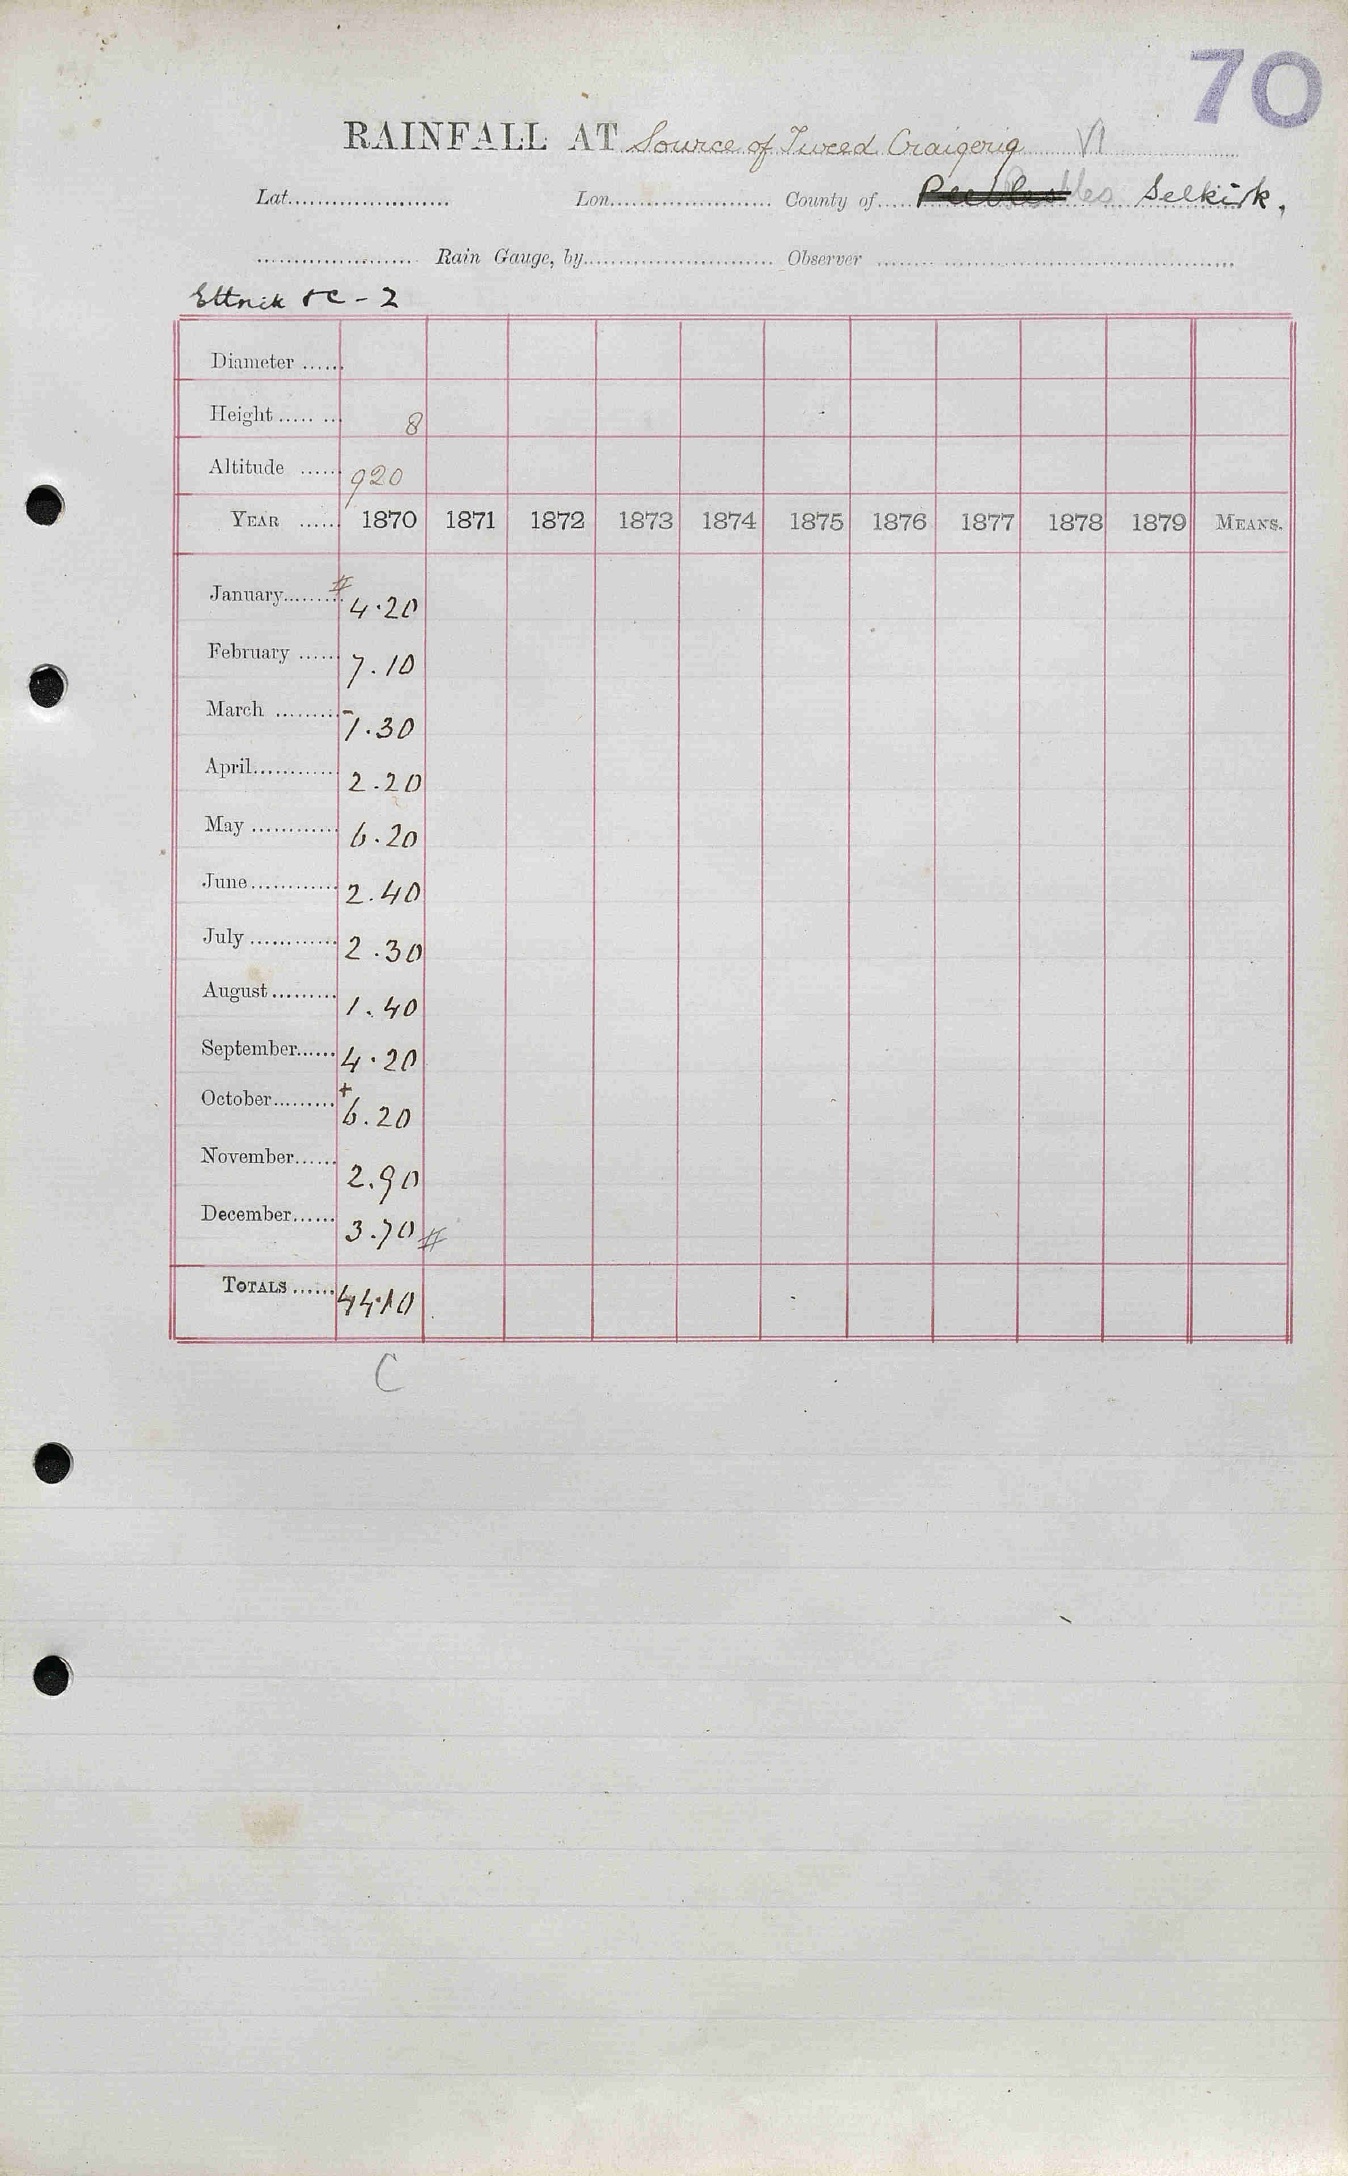 70
RAINFALL AT Source of Tweed Craigerig VI
Lat. Lon. County of Peebles Selkirk.
Rain Gauge, by Observer
Ettrick &c - 2
Diameter
Height 8
Altitude 920
YEAR 1870 1871 1872 1873 1874 1875 1876 1877 1878 1879 MEANS.
January # 4.20
February 7.10
March - 1.30
April 2.20
May 6.20
June 2.40
July 2.30
August 1.40
September 4.20
October + 6.20
November 2.90
December 3.70 #
TOTALS 44.10
C